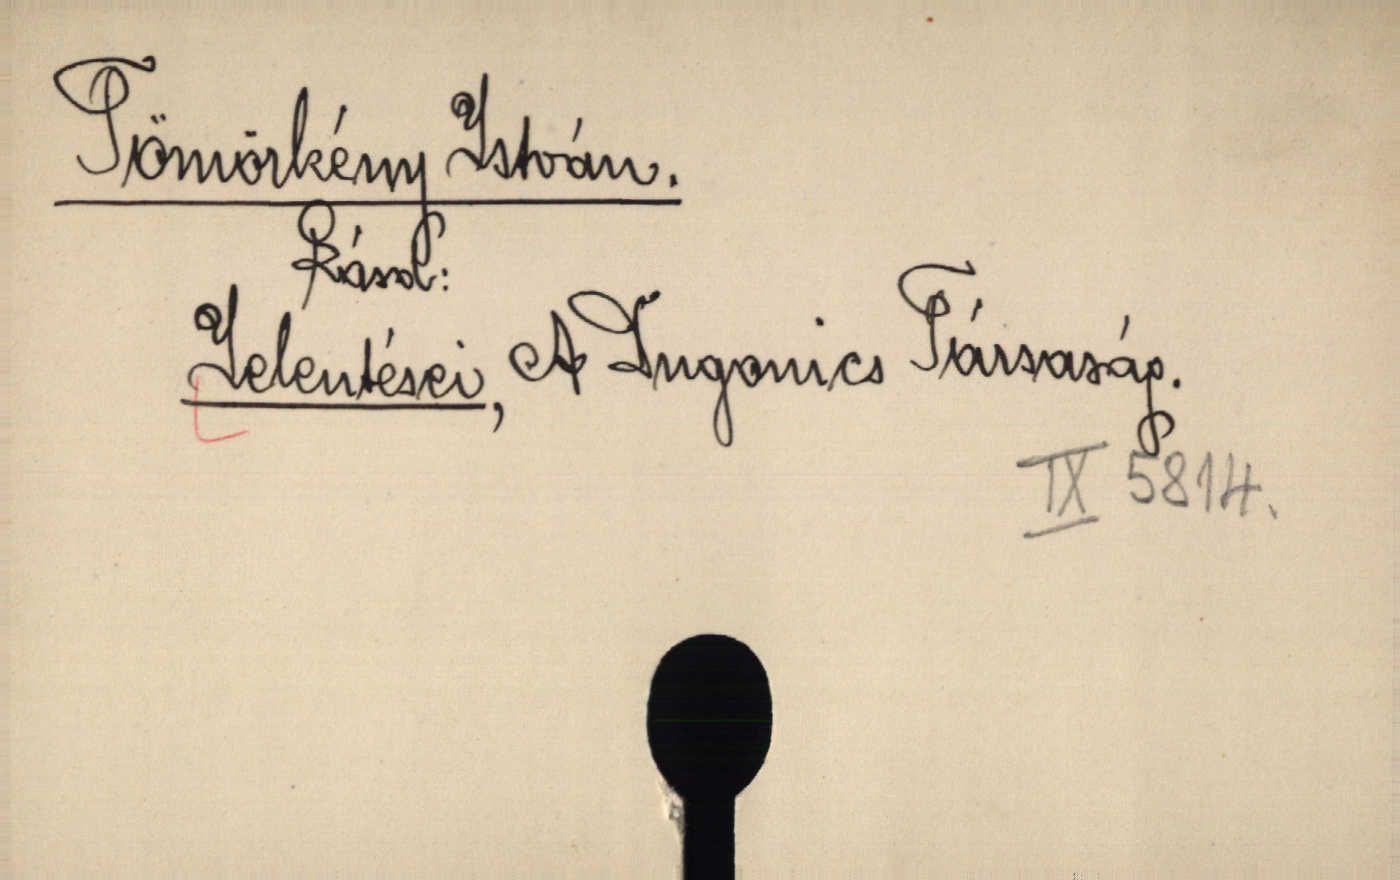 Tömörkény István.
Rásol:
Jelentései, A Dugonics Társaság.
IX 5814.